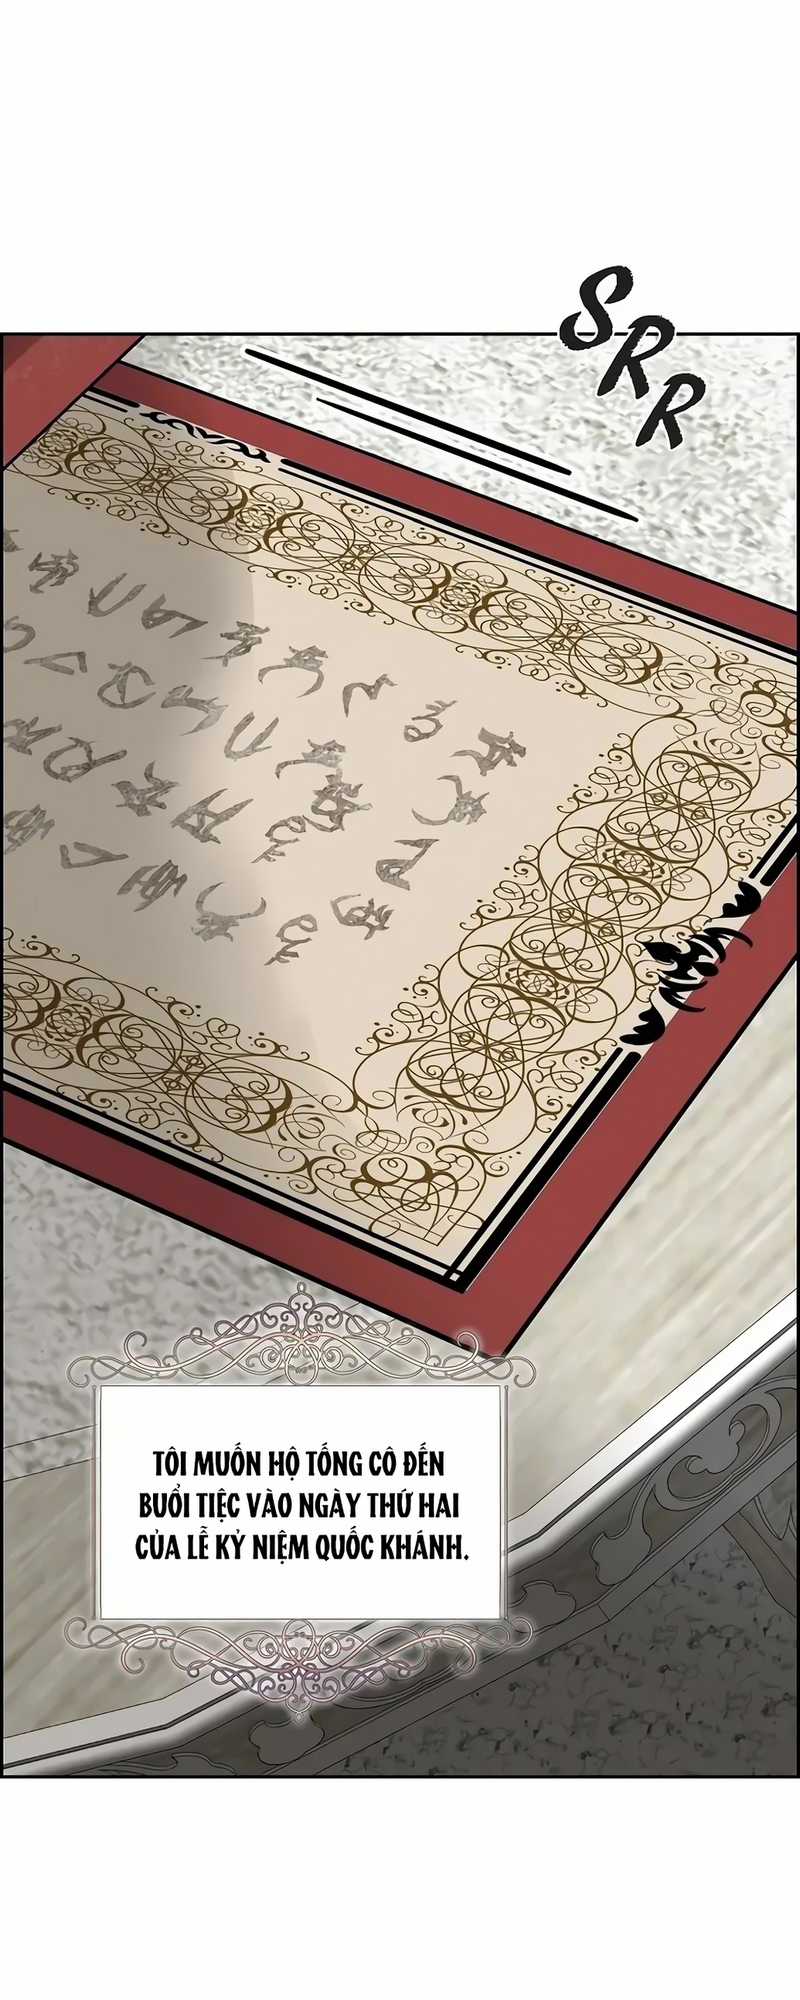 SRR
TÔI MUỐN HỘ TỐNG CÔ ĐẾN
BUỔI TIỆC VÀO NGÀY THỨ HAI
CỦA LỄ KỶ NIỆM QUỐC KHÁNH.